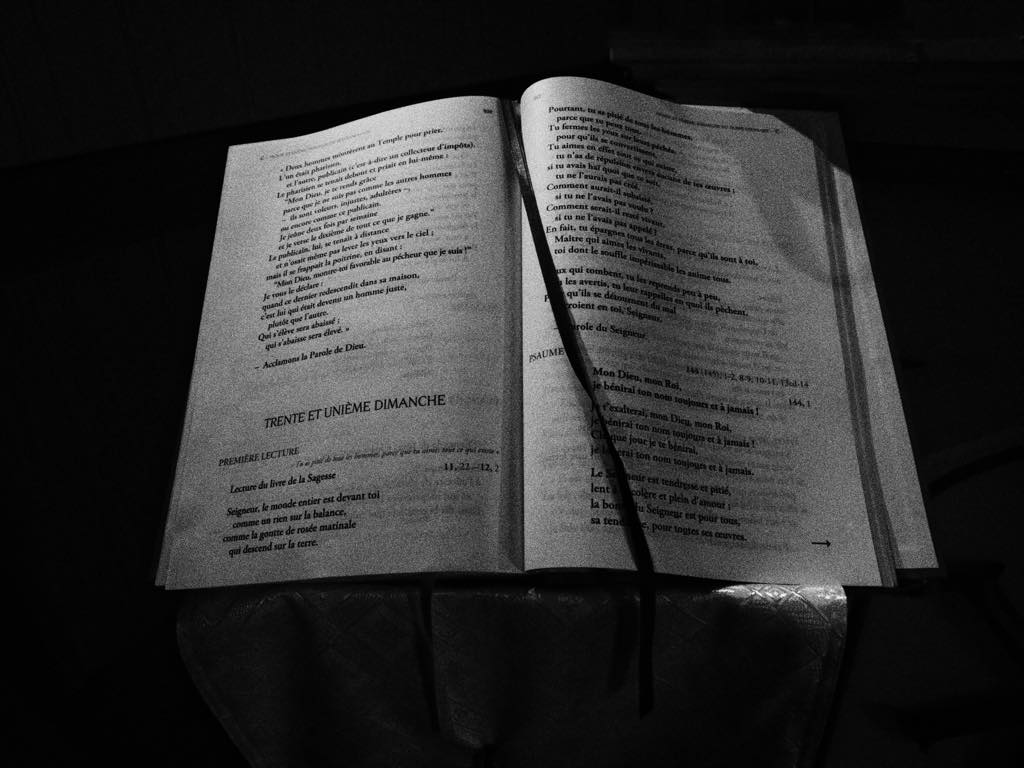 « Deux hommes montèrent au Temple pour prier.
L'un était pharisien,
et l'autre, publicain (c'est-à-dire un collecteur d'impôts).
Le pharisien se tenait debout et priait en lui-même :
"Mon Dieu, je te rends grâce
parce que je ne suis pas comme les autres hommes
– ils sont voleurs, injustes, adultères –,
ou encore comme ce publicain.
Je jeûne deux fois par semaine
et je verse le dixième de tout ce que je gagne."
Le publicain, lui, se tenait à distance
et n'osait même pas lever les yeux vers le ciel ;
mais il se frappait la poitrine, en disant :
"Mon Dieu, montre-toi favorable au pécheur que je suis !"
Je vous le déclare :
quand ce dernier redescendit dans sa maison,
c'est lui qui était devenu un homme juste,
plutôt que l'autre.
Qui s'élève sera abaissé ;
qui s'abaisse sera élevé. »
– Acclamons la Parole de Dieu.
TRENTE ET UNIÈME DIMANCHE
PREMIÈRE LECTURE
Tu as pitié de tous les hommes, parce que tu aimes tout ce qui existe »
Lecture du livre de la Sagesse
11, 22 – 12, 2
Seigneur, le monde entier est devant toi
comme un rien sur la balance,
comme la goutte de rosée matinale
qui descend sur la terre.
Pourtant, tu as pitié de tous les hommes,
parce que tu peux tout.
Tu fermes les yeux sur leurs péchés,
pour qu'ils se convertissent.
Tu aimes en effet tout ce qui existe,
tu n'as de répulsion envers aucune de tes œuvres ;
si tu avais haï quoi que ce soit,
tu ne l'aurais pas créé.
Comment aurait-il subsisté,
si tu ne l'avais pas voulu ?
Comment serait-il resté vivant,
si tu ne l'avais pas appelé ?
En fait, tu épargnes tous les êtres, parce qu'ils sont à toi,
Maître qui aimes les vivants,
toi dont le souffle impérissable les anime tous.
ux qui tombent, tu les reprends peu à peu,
les avertis, tu leur rappelles en quoi ils pèchent,
p qu'ils se détournent du mal
croient en toi, Seigneur.
– arole du Seigneur
PSAUME
144 (145), 1-2, 8-9, 10-11, 13cd-14
Mon Dieu, mon Roi,
144, 1
je bénirai ton nom toujours et à jamais !
Je t'exalterai, mon Dieu, mon Roi,
je bénirai ton nom toujours et à jamais !
Chaque jour je te bénirai,
je louerai ton nom toujours et à jamais.
Le Seigneur est tendresse et pitié,
lent à la colère et plein d'amour ;
la bonté du Seigneur est pour tous,
sa tendresse, pour toutes ses œuvres.
→